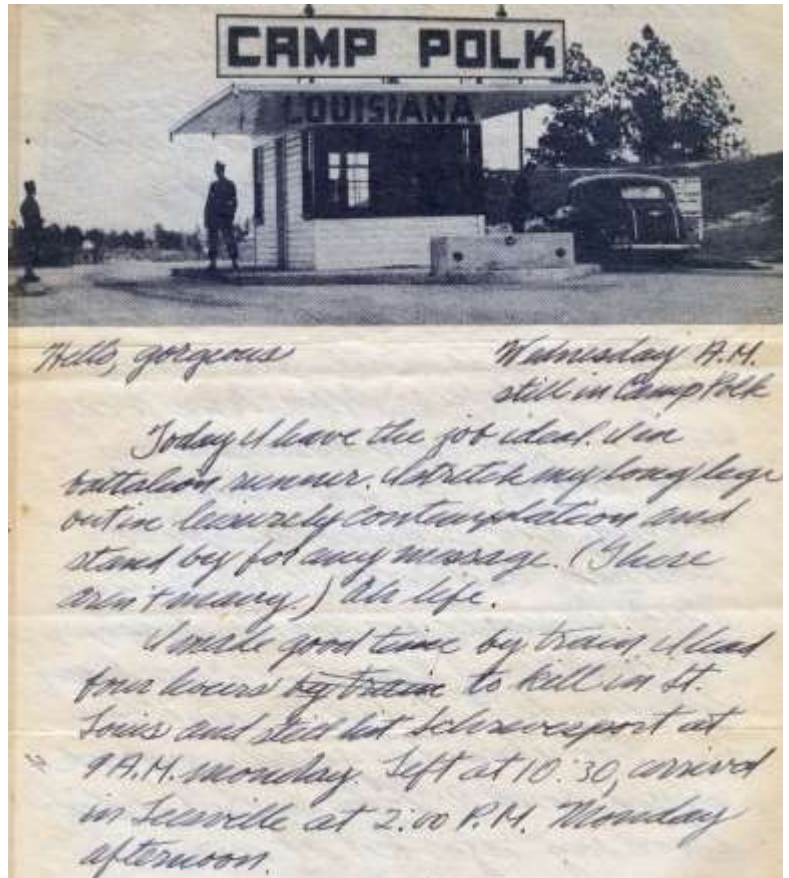 CAMP POLK
LOUISIANA
Hello, gorgeous
Wednesday A.M.
still in Camp Polk
Today I have the job ideal. I'm
battalion runner. I stretch my long legs
out in leisurely contemplation and
stand by for any message. (There
aren't many.) Ah life.
I made good time by train. I had
four hours by train to kill in St.
Louis and still hit Schreveport at
9 A.M. monday. Left at 10:30, arrived
in Leesville at 2:00 P.M. Monday
afternoon.